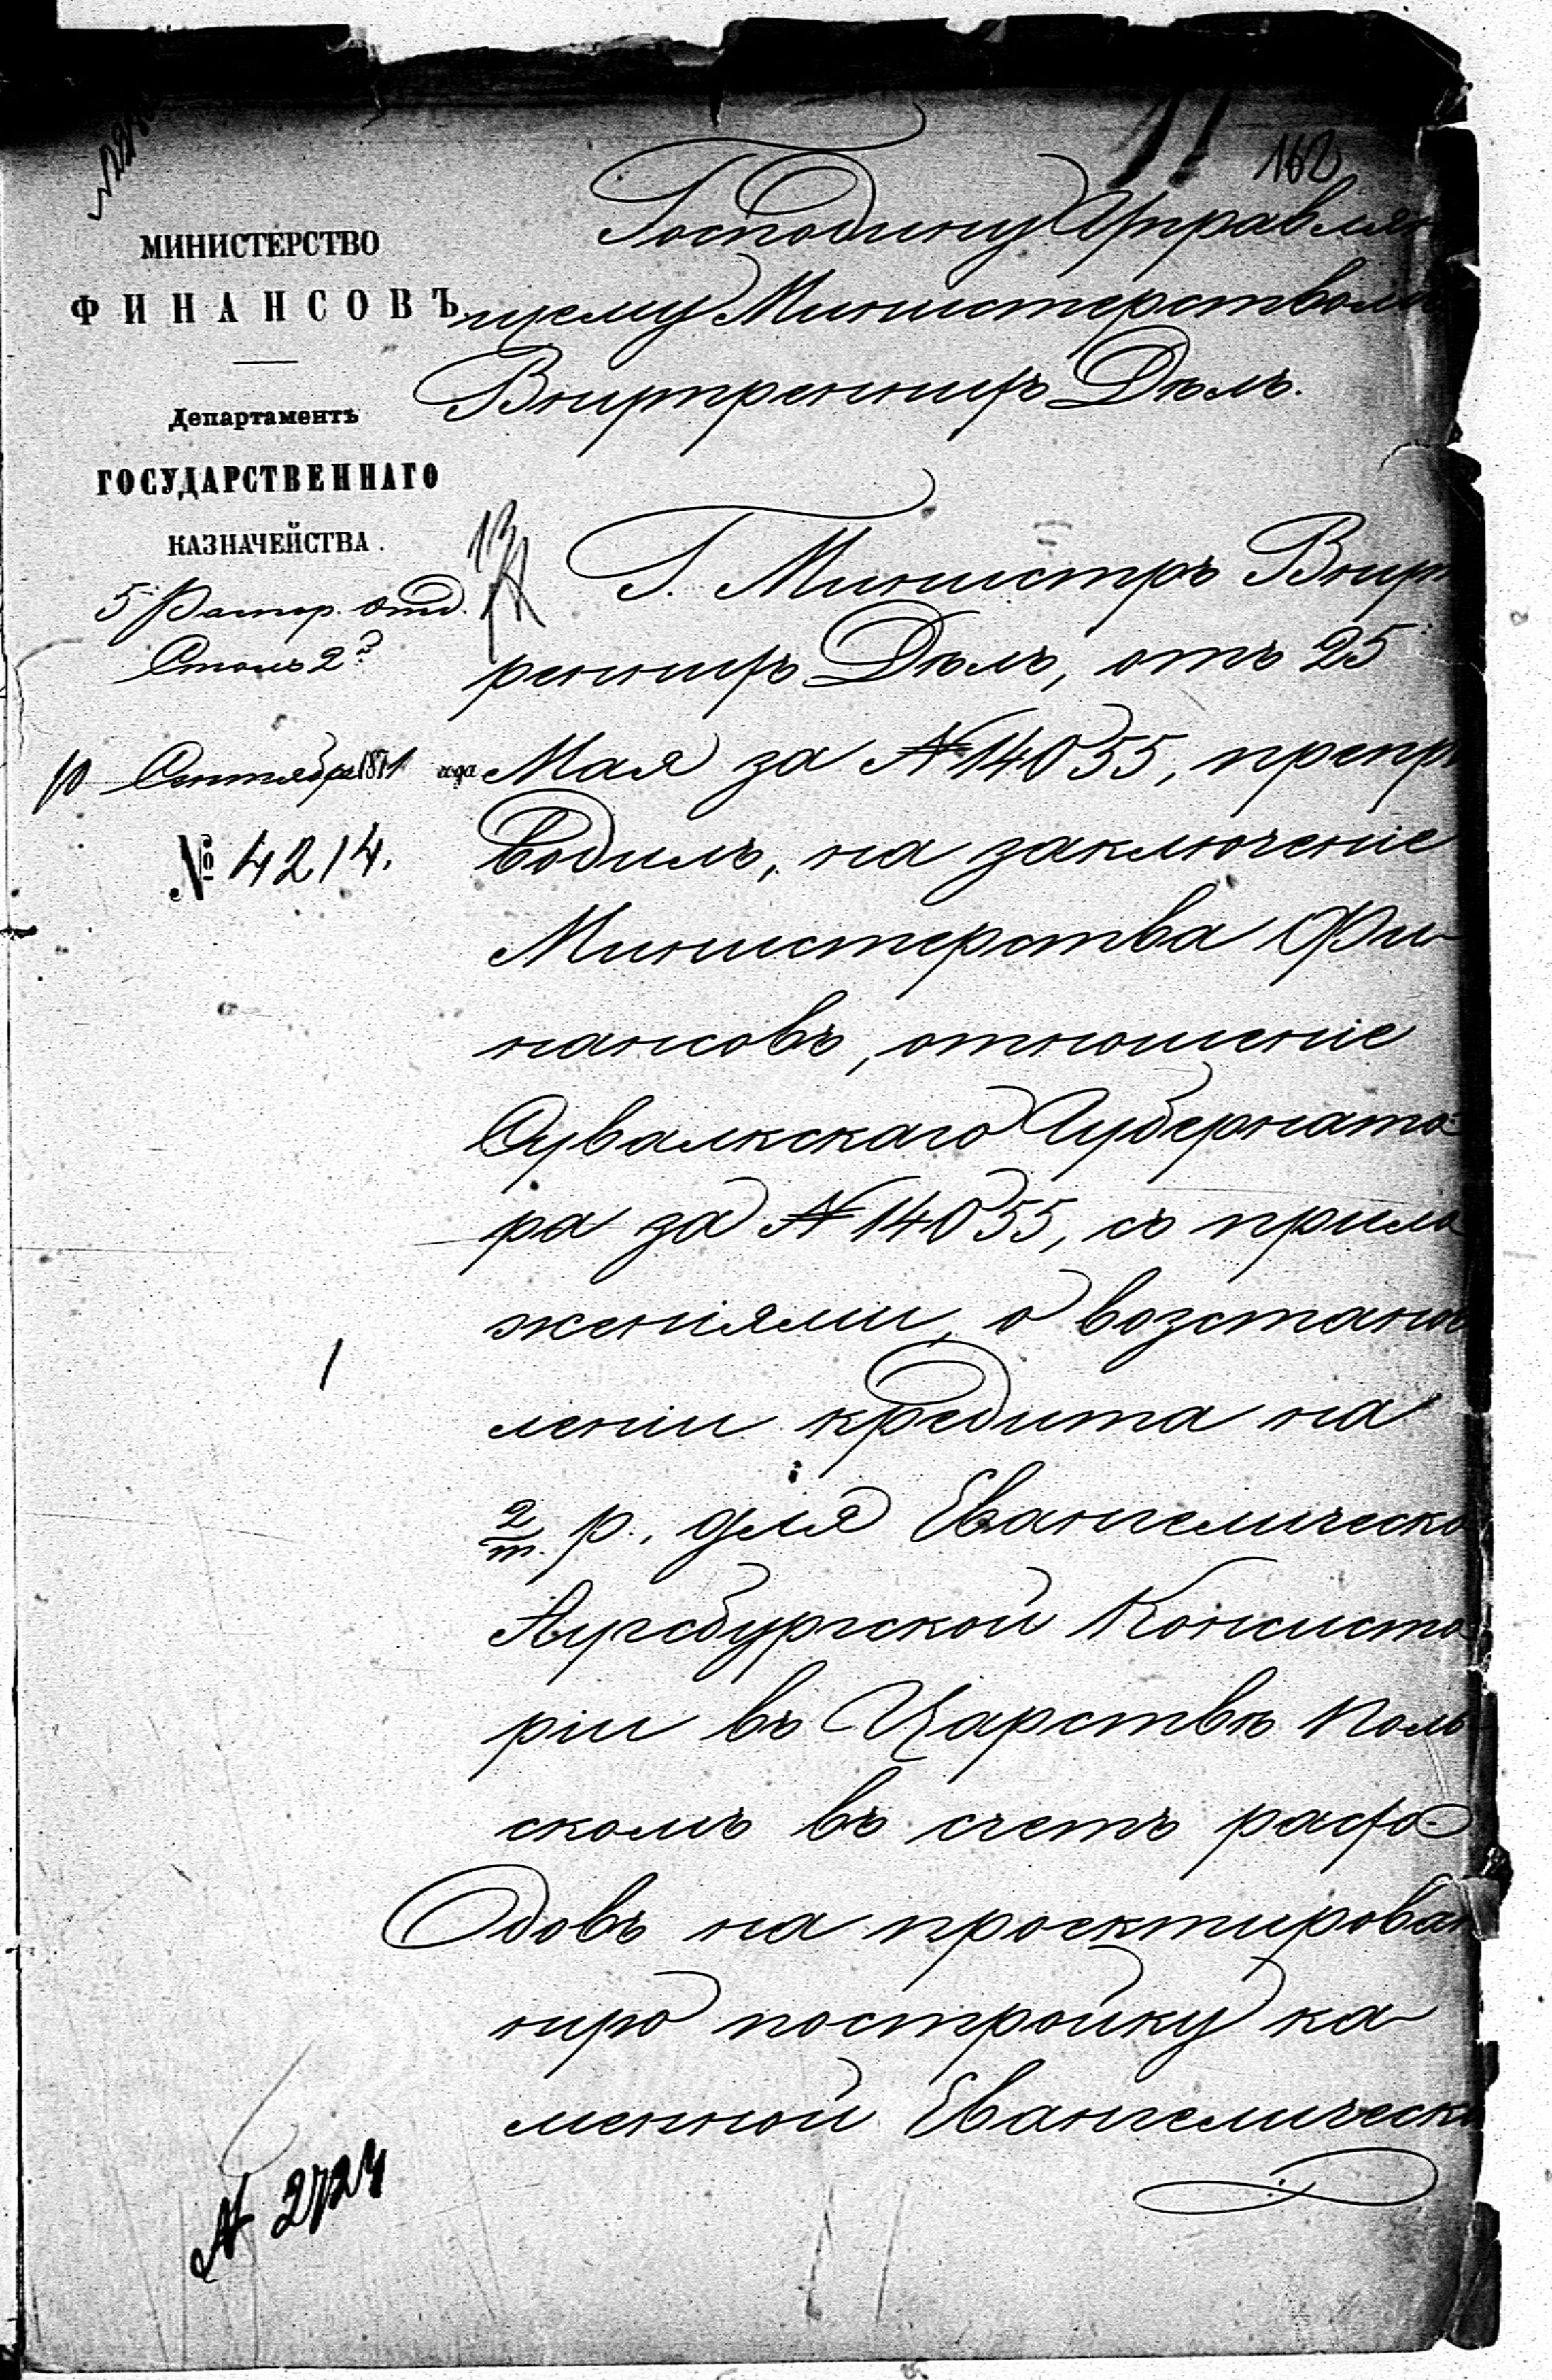 162
МИНИСТЕРСТВО
ФИНАНСОВЪ
Департаментъ
ГОСУДАРСТВЕННАГО
КАЗНАЧЕЙСТВА.
5 Распор. Отд.
Столъ 2й
10 Сентября 1871 года
№ 4214.
Господину Управляю
щему Министерствомъ
Внутреннихъ Дѣлъ.
Г. Министръ Внут
реннихъ Дѣлъ, отъ 25
Мая за № 14055, препро
водилъ, на заключеніе
Министерства Фи
нансовъ, отношеніе
Сувалкскаго Губернато
ра за № 14055, съ прило
женіями, о возстанов
леніи кредита на
2/т. р. для Евангелическо
Аугсбургской Консисто
ріи въ Царствѣ Поль
скомъ въ счетъ расхо
довъ на проектирован
ную постройку ка
менной Евангелическо
№ 2724